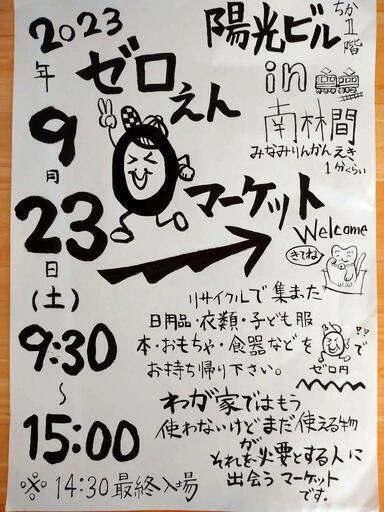 2023
年
9
月
23
日
(土)
9:30
〜
15:00
※ 14:30 最終入場
ゼロ
えん
マーケット
陽光ビル
ちか1階
in
南林間
みなみりんかんえき
1分くらい
Welcome
きてね
リサイクルで集まった
日用品・衣類・子ども服
本・おもちゃ・食器などを
ゼロ円
で
お持ち帰り下さい。
わが家ではもう
使わないけどまだ使える物
が
それを必要とする人に
出会うマーケット
です。